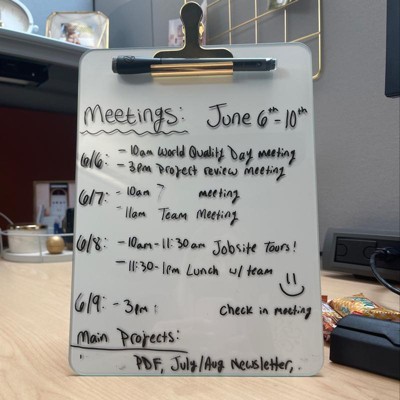 Meetings: June 6th-10th
6/6: - 10am World Quality Day meeting
- 3pm Project review meeting
6/7: - 10am ? meeting
- 11am Team Meeting
6/8: - 10am-11:30am Jobsite Tours!
- 11:30-1pm Lunch w/team
6/9: - 3pm: Check in meeting
Main Projects:
PDF, July/Aug Newsletter,